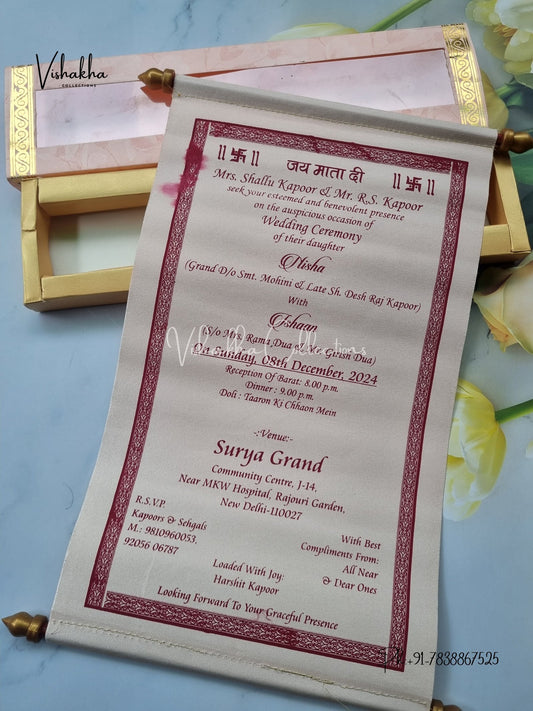 Vishakha
COLLECTIONS
|| 卐 || जय माता दी || 卐 ||
Mrs. Shallu Kapoor & Mr. R.S. Kapoor
seek your esteemed and benevolent presence
on the auspicious occasion of
Wedding Ceremony
of their daughter
Nisha
(Grand D/o Smt. Mohini & Late Sh. Desh Raj Kapoor)
With
Eshaan
(S/o Mrs. Rama Dua & Mr. Girish Dua)
Vishakha Collections
On Sunday, 08th December, 2024
Reception Of Barat: 8.00 p.m.
Dinner : 9.00 p.m.
Doli : Taaron Ki Chhaon Mein
-:Venue:-
Surya Grand
Community Centre, J-14,
Near MKW Hospital, Rajouri Garden,
New Delhi-110027
R.S.V.P.
Kapoors & Sehgals
M.: 9810960053,
92056 06787
With Best
Compliments From:
All Near
& Dear Ones
Loaded With Joy:
Harshit Kapoor
Looking Forward To Your Graceful Presence
+91-7838867525